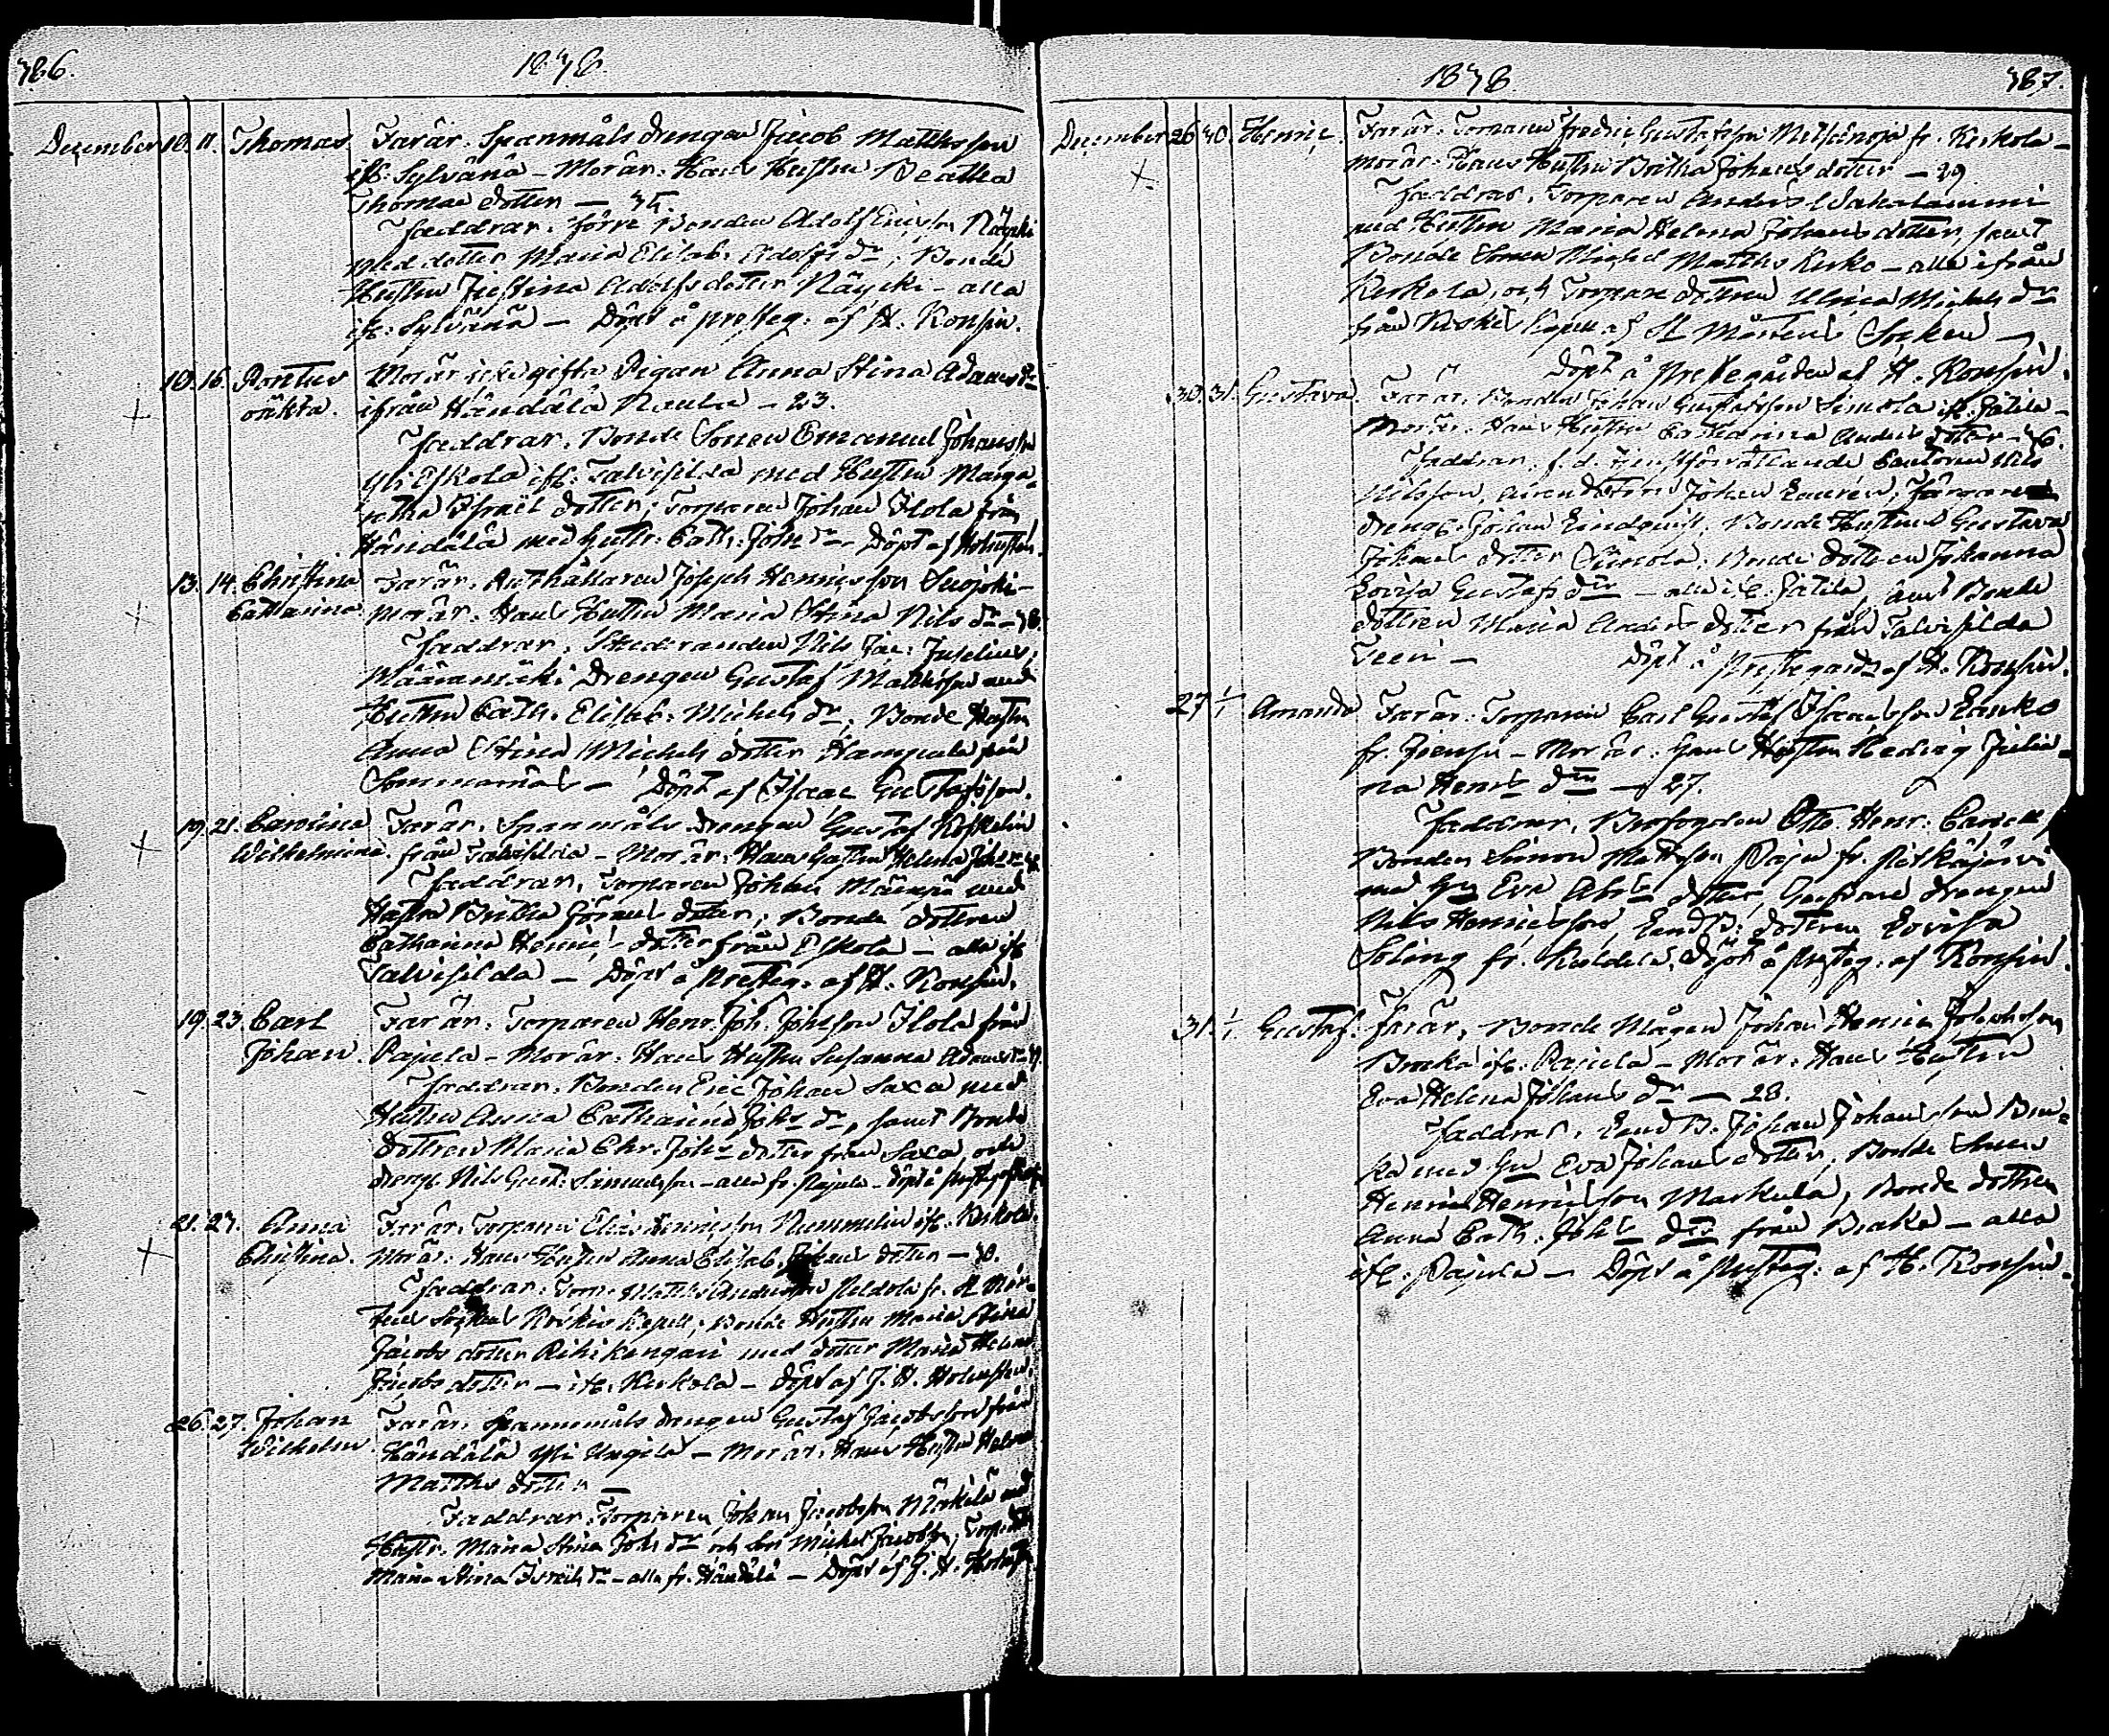 786. 1838.
December 10. 11. Thomas Far är: Spanmåls drengen Jacob Matthsson
ifr: Sylvänä – Mor är: Hans Hustru Beatha
Thomae dotter – 35.
Faddrar: förre Bonden Adolf Ericsson Näyki
med dotter Maria Elisab. Adolfs dr; Bonde
Hustru Justina Adolfs dotter Näyki – alla
ifr: Sylvänä – Döpt å presteg: af H. Konsin.
10. 16. Pontus Mor är: icke gifta Pigan Anna Stina Adams dr
oäkta. ifrån Händälä Raula – 23.
Faddrar: Bonde Sonen Emanuel Johansson
Yli Eskola ifr: Talvisilda med Hustru Marga-
retha Israels dotter; Torparen Johan Ilola från
Händälä med Hustr. Cath: Joh: dr – Döpt af Holmsten.
13. 14. Christina Far är: Joseph Henricsson Suojoki –
Catharina Mor är: Hans Hustru Maria Stina Nils dr – 38.
Faddrar: Studeranden Nils Jac: Juselius,
drengen Gustaf Matthsson med
Hustru Cath. Elisab. Michels dr; Bonde Hustru
Anna Stina Michels dotter Hampula från
Sommarnäs – Döpt af Isaac Gustafsson.
19. 21. Carolina Far är: Spanmåls drengen Gustaf Koskelin
Wilhelmina. från Talvisilda – Mor är: Hans Hustru Helena Joh: dr
Faddrar: Torparen Johan Mänpä med
Hustru Britha Görans dotter; Bonde dottren
Catharina Henrics dotter från Eskola – alla ifr
Talvisilda – Döpt å Presteg. af H. Konsin.
19. 23. Carl Far är: Torparen Henr. Joh. Johsson Ilola från
Johan. Pajula – Mor är: Hans Hustru Susanna Adams dr
Faddrar: Bonden Eric Johan Saxa med
Hustru Anna Catharina Johs dr, samt Bonde
dottren Maria Chr. Johs dotter från Saxa, och
dreng. Nils Gust: Simuelsson – alla fr. Pajula – döpt å Presteg.
21. 27. Anna Far är: Torparen Elias Henricsson Nummelin ifr. Kerkola.
Christina. Mor är: Hans Hustru Anna Elisab. Johans dotter – 30.
Faddrar: Torp: Matths Andersson Peldola fr. St Mår-
tens Sockns Koskis Kapell; Bonde Hustru Maria Stina
Jacobs dotter Rihikangari med dotter Maria Helena
Jacobs dotter – ifr. Kerkola – döpt af J. H. Holmsten.
26. 27. Johan Far är: Spannemåls drengen Gustaf Jacobsson från
Wilhelm. Händälä Yli Ungila – Mor är: Hans Hustru Helena
Matths dotter –
Faddrar: Torparen Johan Jacobsson Märkälä med
Hustr. Maria Stina Johs dr och Son Michel Jacobsson, Torp. dr
Maria Stina Israels dr – alla fr. Händälä – Döpt af J. H. Holmsten
1838. 787.
December 26 30. Henric. Far är: Torparen Fredric Gustafsson Metsänoja fr. Kerkola –
Mor är: Hans Hustru Britha Johans dotter – 29.
Faddrar: Torparen Anders Wakalammi
med Hustru Maria Helena Johans dotter, samt
Bonde Sonen Michel Matths Kerko – alla ifrån
Kerkola, och Torpare dottren Ulrica Michels dr
från Koskis Kapell af St Mårtens Socken –
Döpt å Prestegården af H. Konsin.
30. 31. Gustava. Far är: Bonden Johan Gustafsson Simola ifr. Jätilä –
Mor är: Hans Hustru Catharina Anders dotter – 36.
Faddrar: f. d. Cantoren Nils
Nilsson, Johan Lauren,
dreng. Johan Lindquist, Bonde Hustrun Gustava
Johans dotter Simola, Bonde dottren Johanna
Lovisa Gustafs dr – alla ifr. Jätilä, Bonde
dottren Maria Anders dotter från Talvisilda
Teeri – Döpt å Prestegård af H. Konsin.
27 1/1 Amanda Far är: Torparen Carl Gustaf Isaacsson Lanko
fr. – Mor är: Hans Hustru Hedvig Julia-
na Henrs dr – 27.
Faddrar: Otto Henr:
Bonden Simon Mattsson Paju fr. Pitkäjärvi
med Hu Eva Abrs dotter, drengen
Nils Henricsson, LandB: dottren Lovisa
Soling fr. döpt å Presteg: af Konsin.
31. 1/1. Gustaf. Far är: Bonde Mågen Johan Henric Johansson
Broka ifr. Pajula – Mor är: Hans Hustru
Eva Helena Johans dr – 28.
Faddrar: Land B. Johan Johansson Bro-
ka med Hu Eva Johans dotter; Bonde Sonen
Henric Henricsson Markula, Bonde dottren
Anna Cath: Johs dr från Broka – alla
ifr. Pajula – Döpt å Presteg: af H. Konsin.